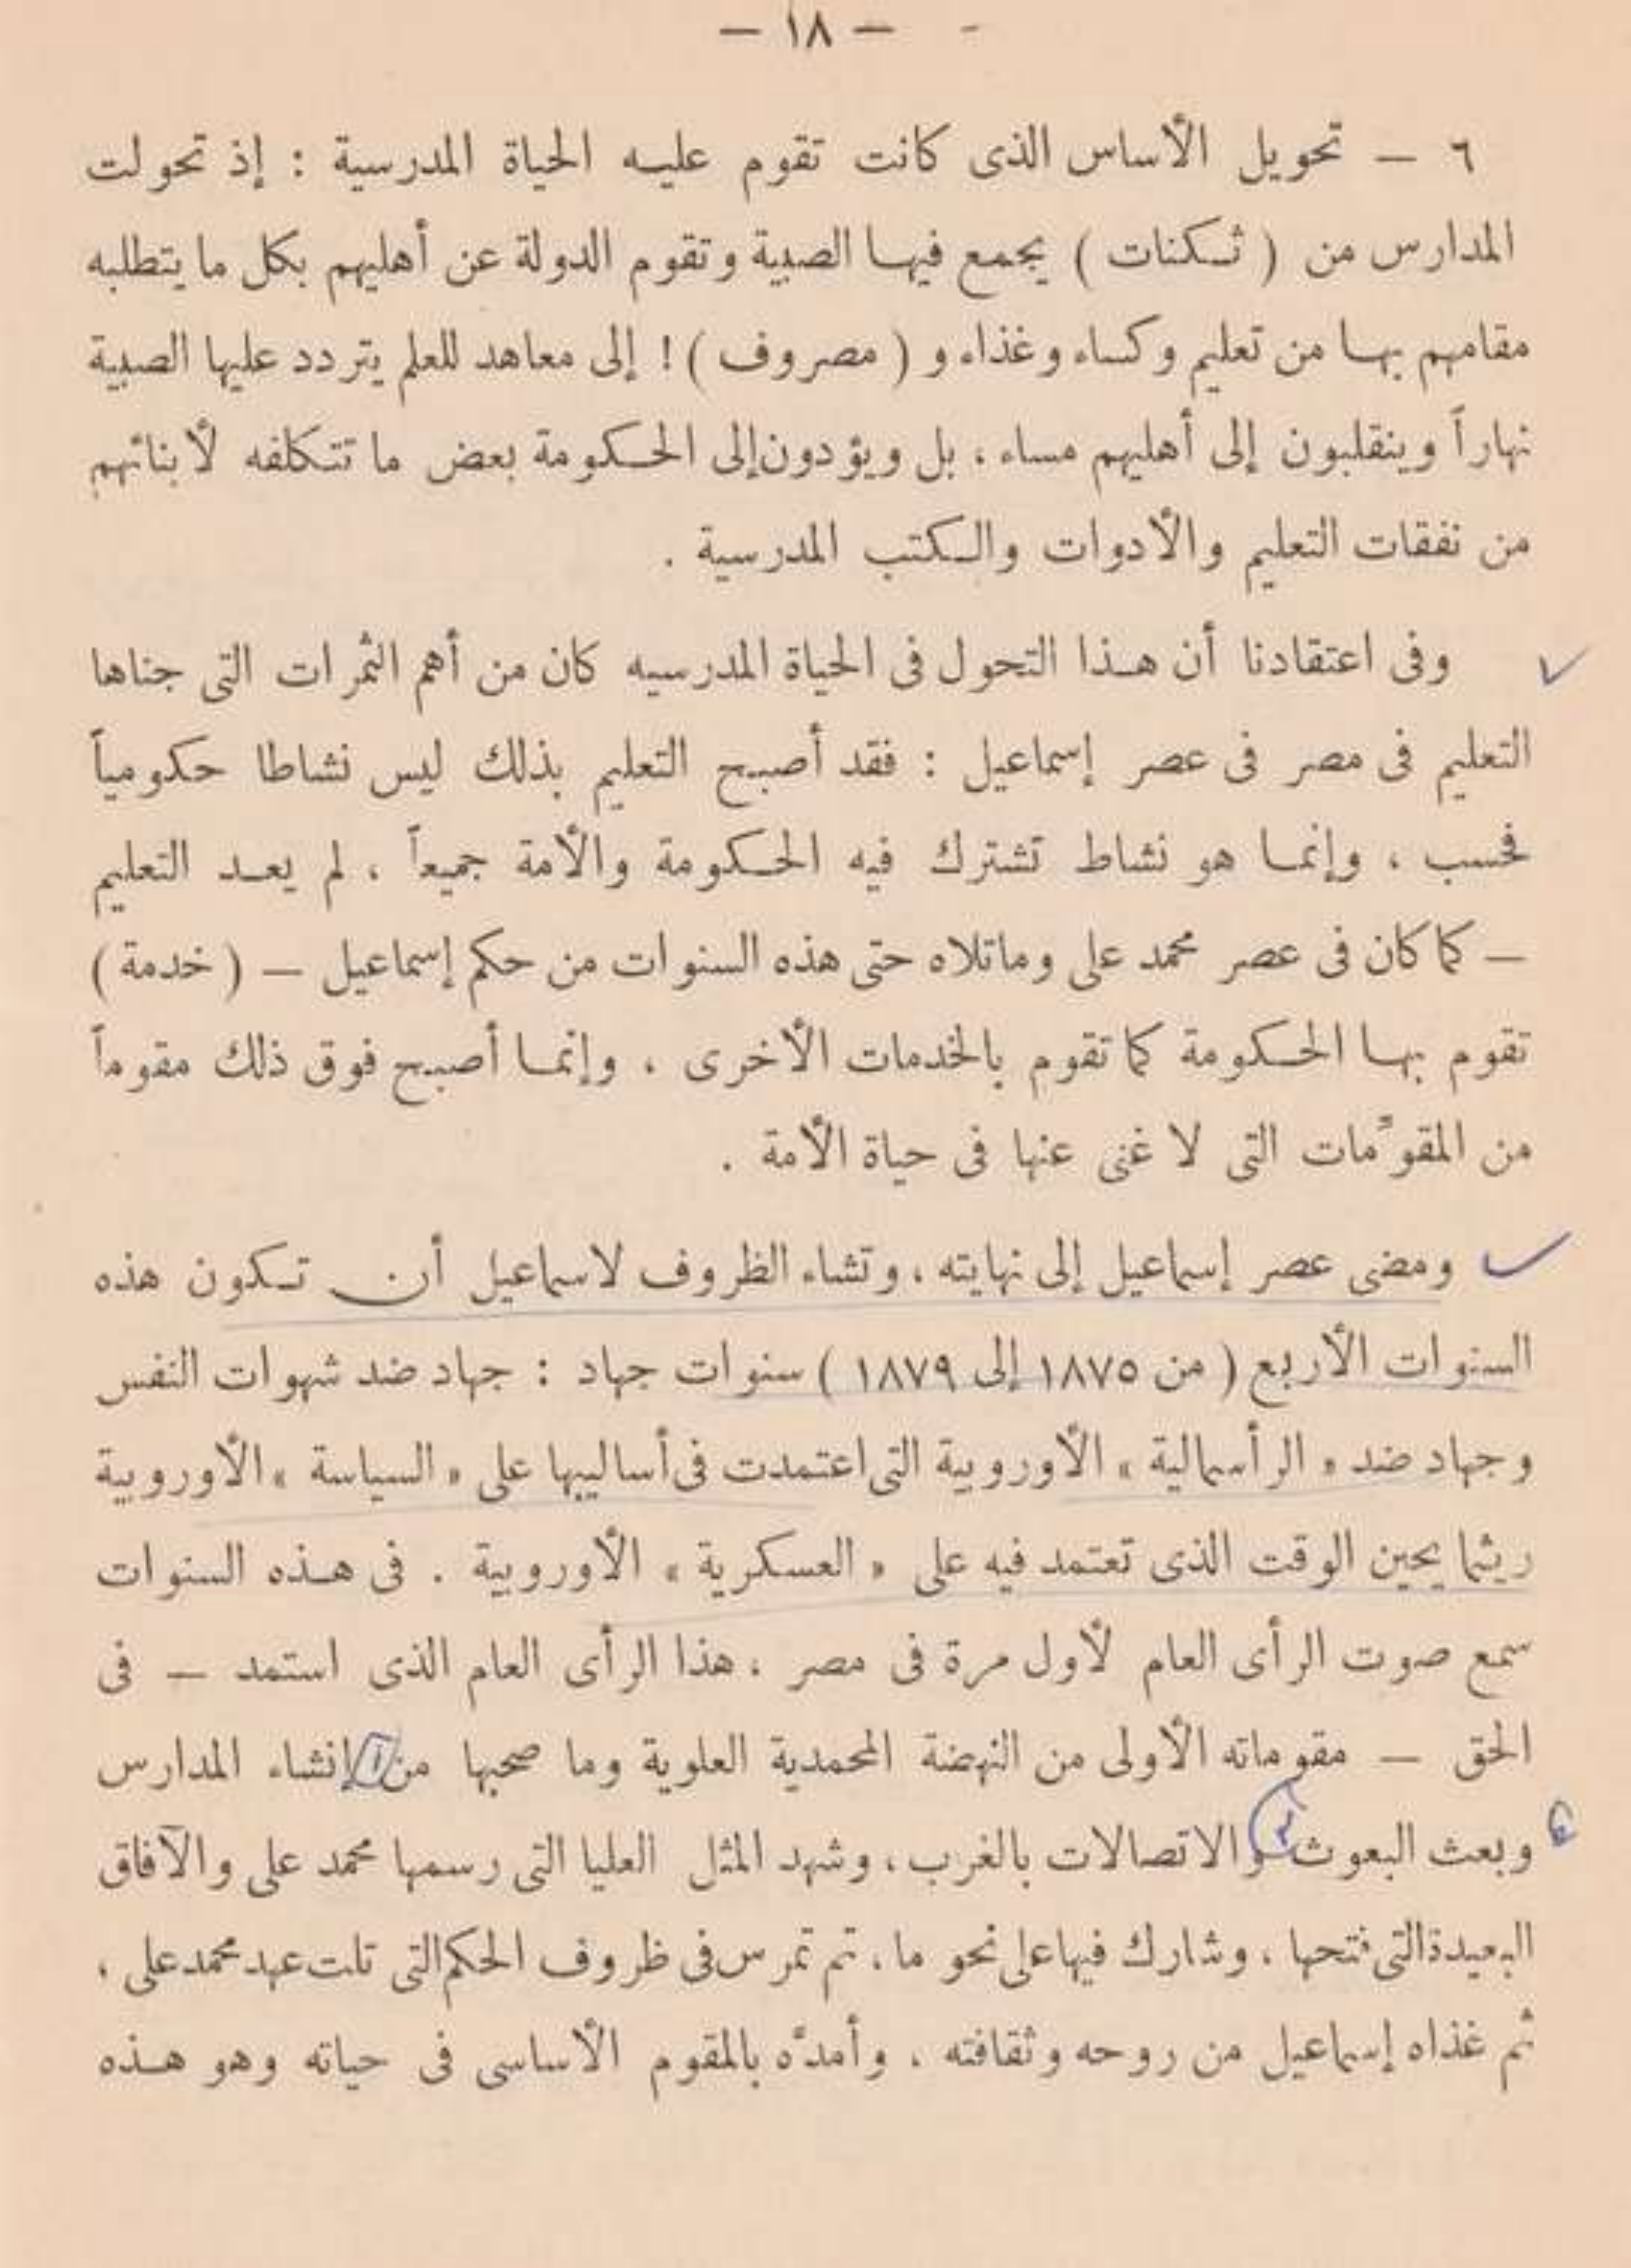 — ١٨ —
٦ — تحويل الأساس الذى كانت تقوم عليه الحياة المدرسية : إذ تحولت
المدارس من ( ثكنات ) يجمع فيها الصبية وتقوم الدولة عن أهليهم بكل ما يتطلبه
مقامهم بها من تعليم وكساء وغذاء و ( مصروف ) ! إلى معاهد للعلم يتردد عليها الصبية
نهاراً وينقلبون إلى أهليهم مساء ، بل ويؤدون إلى الحكومة بعض ما تتكلفه لأبنائهم
من نفقات التعليم والأدوات والكتب المدرسية .
وفى اعتقادنا أن هذا التحول فى الحياة المدرسيه كان من أهم الثمرات التى جناها
التعليم فى مصر فى عصر إسماعيل : فقد أصبح التعليم بذلك ليس نشاطا حكومياً
فحسب ، وإنما هو نشاط تشترك فيه الحكومة والأمة جميعاً ، لم يعد التعليم
— كما كان فى عصر محمد على وماتلاه حتى هذه السنوات من حكم إسماعيل — ( خدمة )
تقوم بها الحكومة كما تقوم بالخدمات الأخرى ، وإنما أصبح فوق ذلك مقوماً
من المقوِّمات التى لا غنى عنها فى حياة الأمة .
ومضى عصر إسماعيل إلى نهايته ، وتشاء الظروف لاسماعيل أن تكون هذه
السنوات الأربع ( من ١٨٧٥ إلى ١٨٧٩ ) سنوات جهاد : جهاد ضد شهوات النفس
وجهاد ضد « الرأسمالية » الأوروبية التى اعتمدت فى أساليبها على « السياسة » الأوروبية
ريثما يحين الوقت الذى تعتمد فيه على « العسكرية » الأوروبية . فى هذه السنوات
سمع صوت الرأى العام لأول مرة فى مصر ، هذا الرأى العام الذى استمد — فى
الحق — مقوماته الأولى من النهضة المحمدية العلوية وما صحبها من ١ إنشاء المدارس
وبعث البعوث ٣ والاتصالات بالغرب ، وشهد المثل العليا التى رسمها محمد على والآفاق
البعيدة التى فتحها ، وشارك فيها على نحو ما ، ثم تمرس فى ظروف الحكم التى تلت عهد محمد على ،
ثم غذاه إسماعيل من روحه وثقافته ، وأمدَّه بالمقوم الأساسى فى حياته وهو هذه